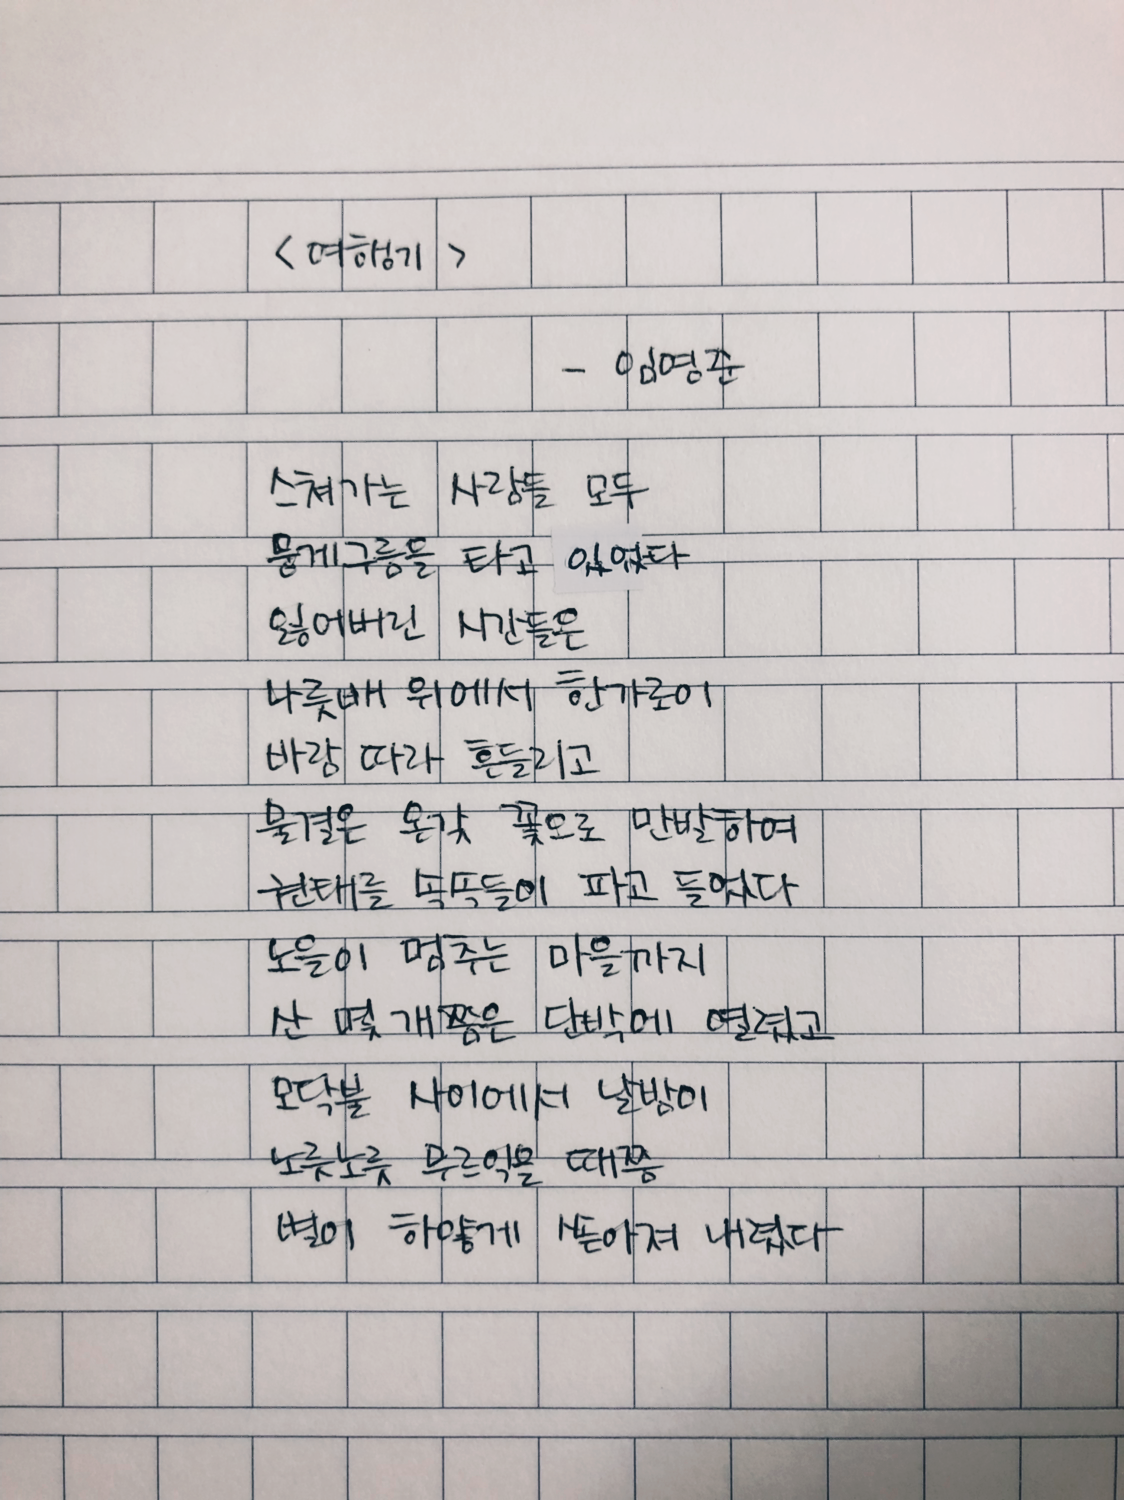 <여행기>
- 임영준
스쳐가는 사람들 모두
뭉게구름들 타고 있었다
잃어버린 시간들은
나룻배 위에서 한가로이
바람 따라 흔들리고
물결은 온갖 꽃으로 만발하여
권태를 똑똑들이 파고 들었다
노을이 멈추는 마을까지
산 몇 개쯤은 단박에 열렸고
모닥불 사이에서 낮밤이
노릇노릇 무르익을 때쯤
별이 하얗게 쏟아져 내렸다